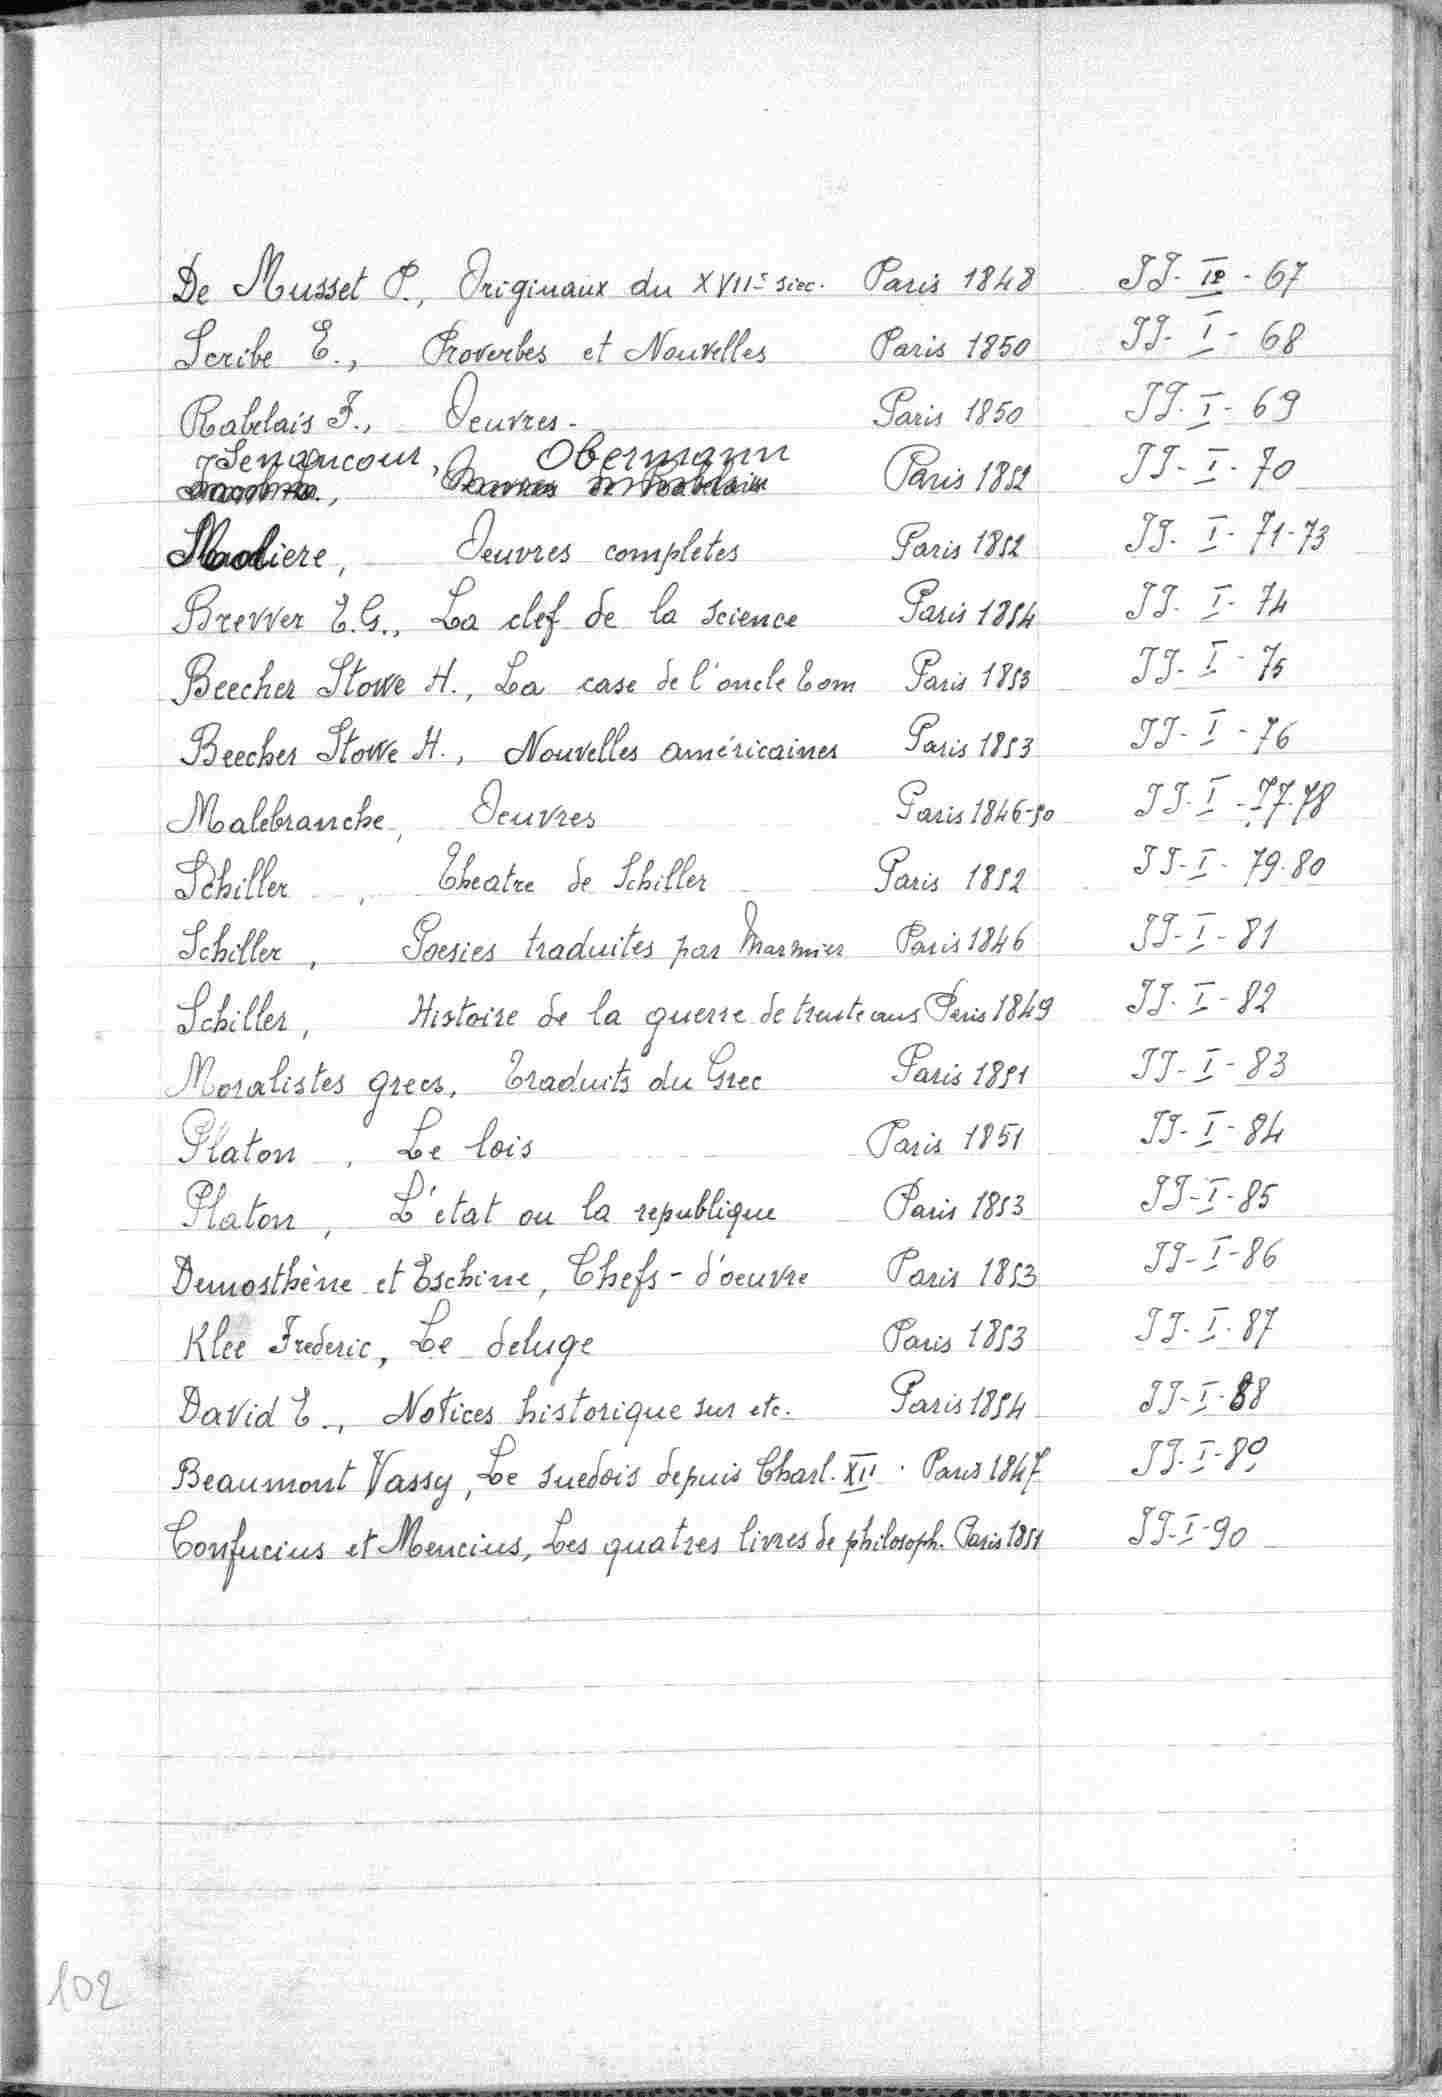 De Musset P., Originaux du XVIIe siec. Paris 1848 II-II-67
Scribe E., Proverbes et Nouvelles Paris 1850 II-I-68
Rabelais F., Oeuvres. Paris 1850 II-I-69
Senancour, Obermann Paris 1852 II-I-70
Moliere, Oeuvres completes Paris 1852 II-I-71-73
Brevver E.G., La clef de la science Paris 1854 II-I-74
Beecher Stowe H., La case de l'oncle Tom Paris 1853 II-I-75
Beecher Stowe H., Nouvelles américaines Paris 1853 II-I-76
Malebranche, Oeuvres Paris 1846-50 II-I-77-78
Schiller, Theatre de Schiller Paris 1852 II-I-79-80
Schiller, Poesies traduites par Marmier Paris 1846 II-I-81
Schiller, Histoire de la guerre de trente ans Paris 1849 II-I-82
Moralistes grecs, Traduits du Grec Paris 1851 II-I-83
Platon, Le lois Paris 1851 II-I-84
Platon, L'état ou la republique Paris 1853 II-I-85
Demosthène et Eschine, Chefs-d'oeuvre Paris 1853 II-I-86
Klee Frederic, Le deluge Paris 1853 II-I-87
David E., Notices historique sur etc. Paris 1854 II-I-88
Beaumont Vassy, Le suedois depuis Charl. XII. Paris 1847 II-I-89
Confucius et Mencius, Les quatres livres de philosoph. Paris 1851 II-I-90
102